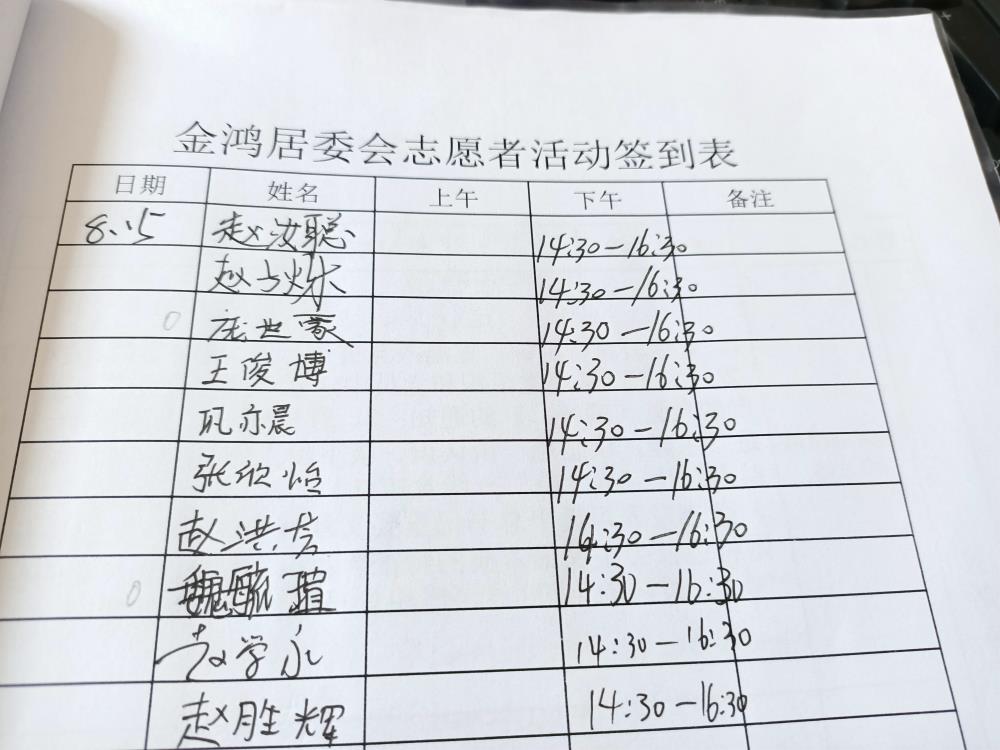 金鸿居委会志愿者活动签到表
日期 姓名 上午 下午 备注
8.15 赵汝聪 14:30—16:30
赵占烁 14:30—16:30
庞世豪 14:30—16:30
王俊博 14:30—16:30
巩亦晨 14:30—16:30
张欣怡 14:30—16:30
赵洪 14:30—16:30
魏毓瑄 14:30—16:30
赵学永 14:30—16:30
赵胜辉 14:30—16:30